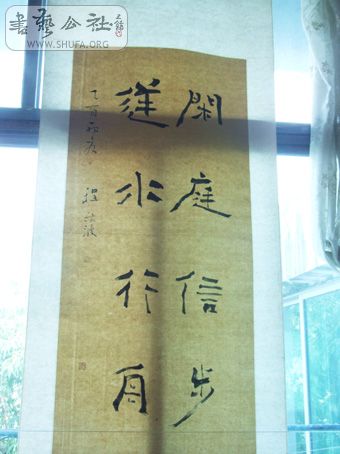 書藝公社
WWW.SHUFA.ORG
閑庭信步
逆水行舟
乙酉